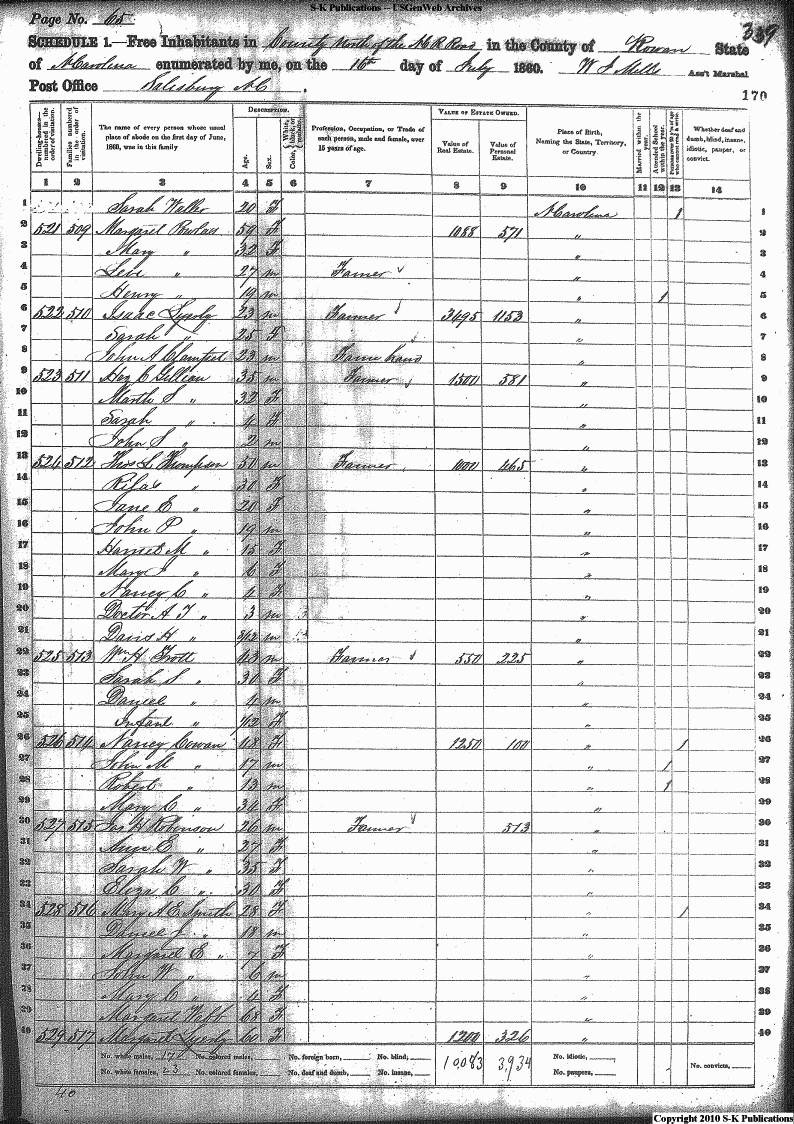 S-K Publications -- USGenWeb Archives
Page No. 65
339
SCHEDULE 1.—Free Inhabitants in County North of the N.C.R Road in the County of Rowan State
of N Carolina enumerated by me, on the 16th day of July 1860. W J Mills Ass't Marshal
Post Office Salisbury N.C.
170
Dwelling-houses—numbered in the order of visitation.
Families numbered in the order of visitation.
The name of every person whose usual place of abode on the first day of June, 1860, was in this family
DESCRIPTION.
Age.
Sex.
Color,
Profession, Occupation, or Trade of each person, male and female, over 15 years of age.
VALUE OF ESTATE OWNED.
Value of Real Estate.
Value of Personal Estate.
Place of Birth, Naming the State, Territory, or Country.
Married within the year.
Attended School within the year.
Whether deaf and dumb, blind, insane, idiotic, pauper, or convict.
1 2 3 4 5 6 7 8 9 10 11 12 13 14
1 Sarah Waller 20 F N Carolina 1 1
2 521 509 Margaret 59 F 1088 571 " 2
3 Mary " 32 F " 3
4 Levi " 27 m Farmer " 4
5 Henry " 19 m " 1 5
6 522 510 Isaac Lyerly 23 m Farmer 3695 1153 " 6
7 Sarah " 25 F " 7
8 John A 23 m Farm hand " 8
9 523 511 Gillian 35 m Farmer 1500 581 " 9
10 Martha S " 32 F " 10
11 Sarah " 4 F " 11
12 John S " 2 m " 12
13 524 512 Thos L Thompson 50 m Farmer 1000 465 " 13
14 " 30 F " 14
15 Jane E " 20 F " 15
16 John P " 19 m " 16
17 Harriet M " 15 F " 17
18 Mary J " 6 F " 18
19 Nancy C " 4 F " 19
20 Doctor A T " 3 m " 20
21 Davis H " m " 21
22 525 513 Wm H Trott 43 m Farmer 550 225 " 22
23 Sarah S " 30 F " 23
24 Daniel " 4 m " 24
25 Infant " F " 25
26 526 514 Nancy Cowan 48 F 1250 100 " 1 26
27 John M " 17 m " 1 27
28 Robert " 13 m " 1 28
29 Mary C " 34 F " 29
30 527 515 Jas H Robinson 26 m Farmer 513 " 30
31 Ann E " 27 F " 31
32 Sarah W " 35 F " 32
33 Eliza C " 30 F " 33
34 528 516 Mary A E Smith 28 F " 1 34
35 Daniel J " 18 m " 35
36 Margaret E " 7 F " 36
37 John W " 6 m " 37
38 Mary C " 4 F " 38
39 Margaret Webb 68 F " 39
40 529 517 Margaret Lyerly 60 F 1200 326 " 40
No. white males, 17 No. colored males, No. foreign born, No. blind, 10,083 3,934 No. idiotic,
No. white females, 23 No. colored females, No. deaf and dumb, No. insane, No. paupers, No. convicts,
40
Copyright 2010 S-K Publications